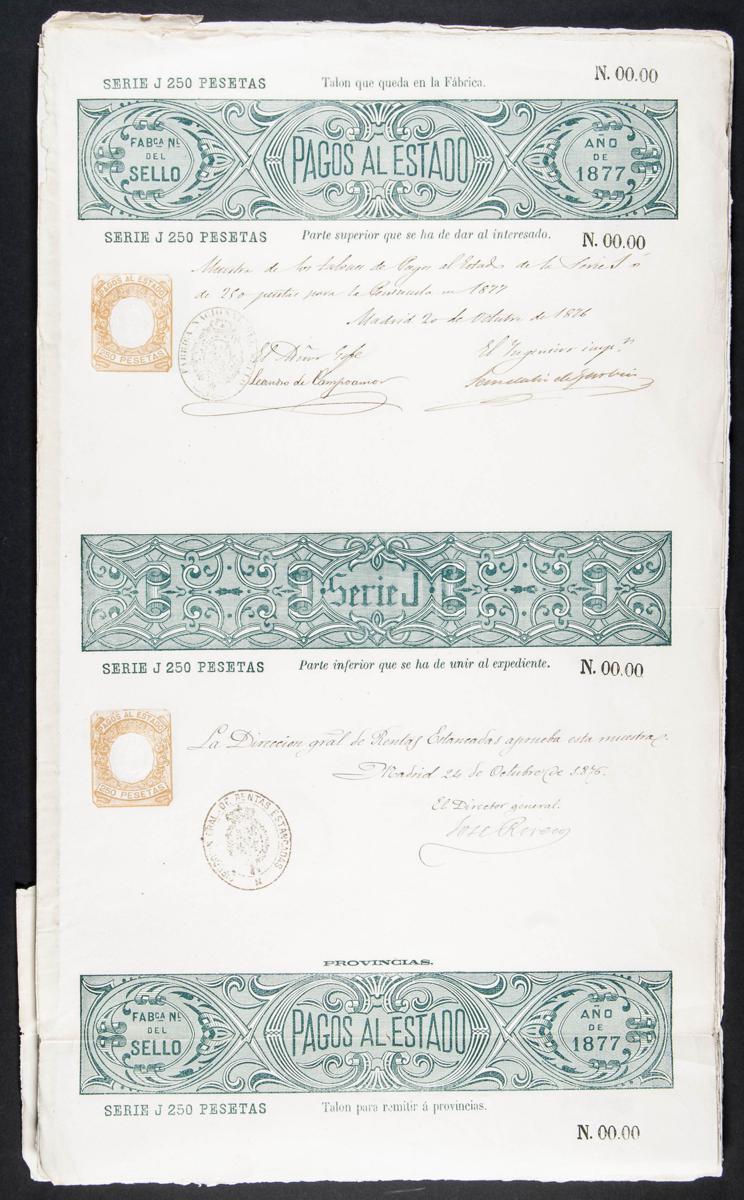 SERIE J 250 PESETAS Talon que queda en la Fábrica. N. 00.00
FABCA NL DEL SELLO PAGOS AL ESTADO AÑO DE 1877
SERIE J 250 PESETAS Parte superior que se ha de dar al interesado. N. 00.00
Muestra de los talones de Pagos al Estado de la Serie J ó
de 250 pesetas para la Peninsula en 1877
Madrid 20 de Octubre de 1876
PAGOS AL ESTADO
250 PESETAS
FABRICA NACIONAL
El Gefe El Ingeniero
Leandro de Campoamor
Serie J
SERIE J 250 PESETAS Parte inferior que se ha de unir al expediente. N. 00.00
PAGOS AL ESTADO
250 PESETAS
La Direccion gral de Rentas Estancadas aprueba esta muestra.
Madrid 24 de Octubre de 1876.
El Director general.
José
DIRECCION GRAL. DE RENTAS ESTANCADAS
PROVINCIAS.
FABCA NL DEL SELLO PAGOS AL ESTADO AÑO DE 1877
SERIE J 250 PESETAS Talon para remitir á provincias.
N. 00.00